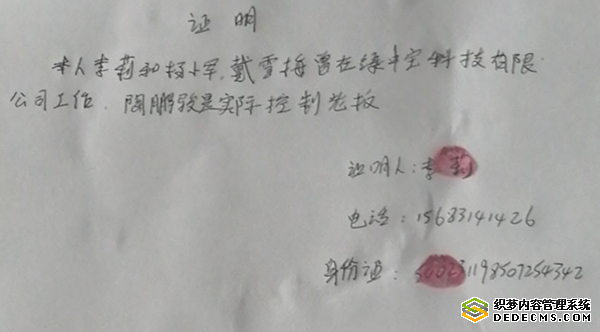 证明
本人李莉和杨小军,戴雪梅曾在绿牛宝科技有限
公司工作.陶鹏骏是实际控制老板
证明人:李莉
电话:15683141426
身份证:500231198507254342
织梦内容管理系统
DEDECMS.COM